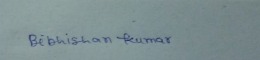 Bibhishan Kumar